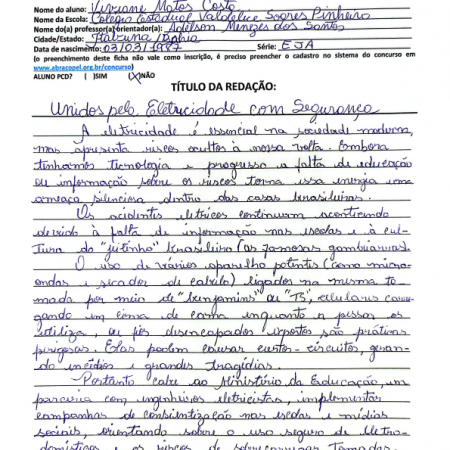 Nome do aluno: Viviane Matos Costa
Nome da Escola: Colégio Estadual Valdelice Soares Pinheiro
Nome do(a) professor(a)orientador(a): Adelson Menezes dos Santos
Cidade/Estado: Itabuna/Bahia
Data de nascimento: 03/03/1987 Série: EJA
(o preenchimento deste ficha não vale como inscrição, é preciso preencher o cadastro no sistema do concurso em
www.abracopel.org.br/concurso)
ALUNO PCD? ( )SIM (X)NÃO
TÍTULO DA REDAÇÃO:
Unidos pela Eletricidade com Segurança
A eletricidade é essencial na sociedade moderna,
mas apresenta riscos ocultos à nossa volta. Embora
tenhamos tecnologia e progresso a falta de educação
ou informação sobre os riscos torna essa energia uma
ameaça silenciosa dentro das casas brasileiras.
Os acidentes elétricos continuam acontecendo
devido à falta de informação nas escolas e à cul-
tura do "jeitinho" brasileiro (as famosas gambiarras).
O uso de vários aparelho potentes (como micro-
ondas e secador de cabelo) ligados na mesma to-
mada por meio de "benjamins" ou "Ts", celulares carre-
gando em cima da cama enquanto a pessoa os
utiliza, ou fios desencapados expostos são práticas
perigosas. Elas podem causar curtos-circuitos, geran-
do incêdios e grandes tragédias.
Portanto cabe ao Ministério da Educação, em
parceria com engenheiros eletricistas, implementar
campanhas de consientização nas escolas e mídias
sociais, orientando sobre o uso seguro de eletro-
domésticos e os riscos de sobrecarregar tomadas.